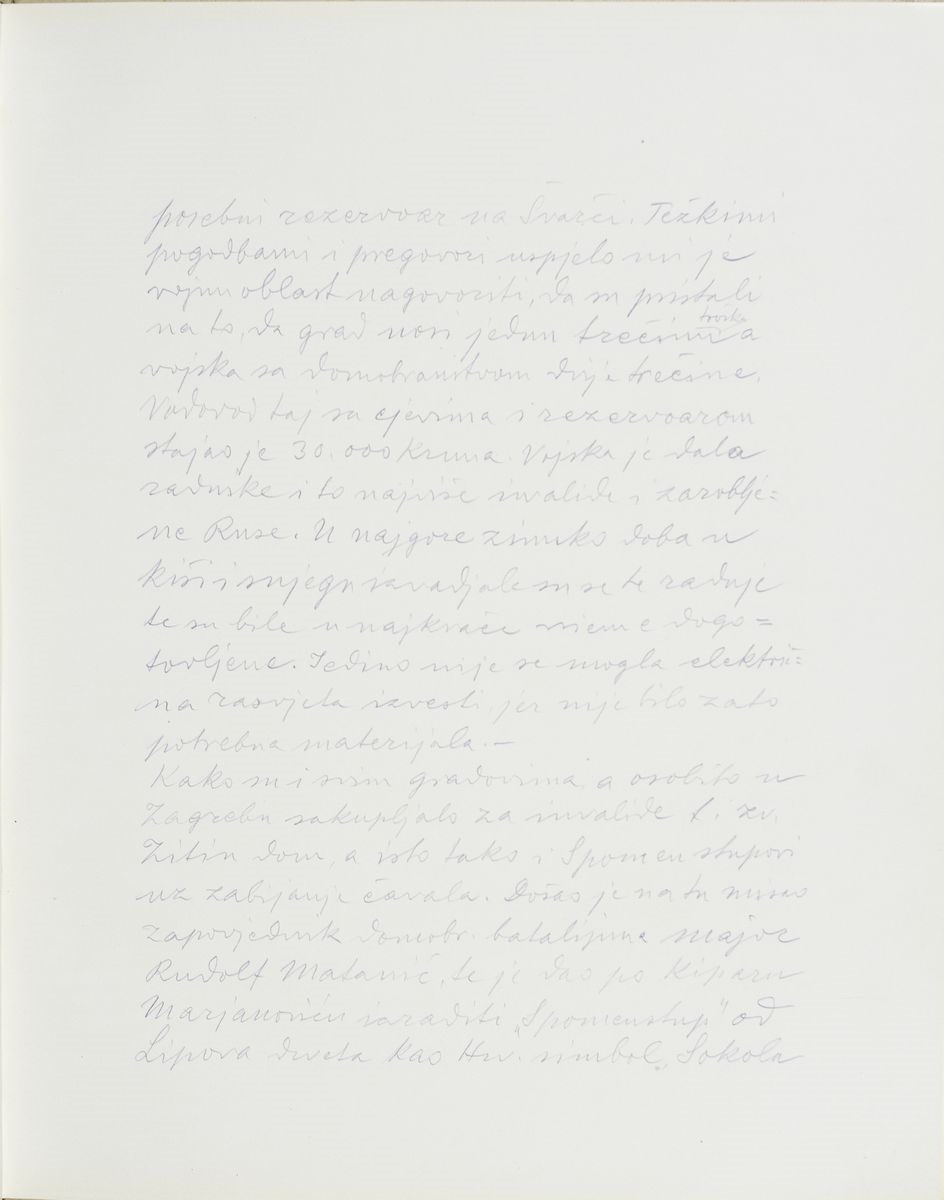 posebni rezervoar na Švarči. Težkimi
pogodbami i pregovori uspjelo mi je
vojnu oblast nagovoriti, da su pristali
na to, da grad nosi jednu trećinu troška a
vojska sa domobranstvom dvije trećine.
Vodovod taj sa cjevima i rezervoarom
stajao je 30.000 Kruna. Vojska je dala
radnike i to najviše invalide i zaroblje=
ne Ruse. U najgore zimsko doba u
kiši i snjegu izvadjale su se te radnje
te su bile u najkraće vrieme dogo=
tovljene. Jedino nije se mogla elektrić=
na rasvjeta izvesti, jer nije bilo zato
potrebna materijala. —
Kako su i svim gradovima, a osobito u
Zagrebu sakupljalo za invalide t. zv.
Zitin dom, a isto tako i Spomen stupovi
uz zabijanje čavala. Došao je na tu misao
zapovjednik domobr. batalijuna major
Rudolf Matanić, te je dao po Kiparu
Marjanoviću izraditi „Spomenstup" od
Lipova drveta kao Hrv. simbol, Sokola